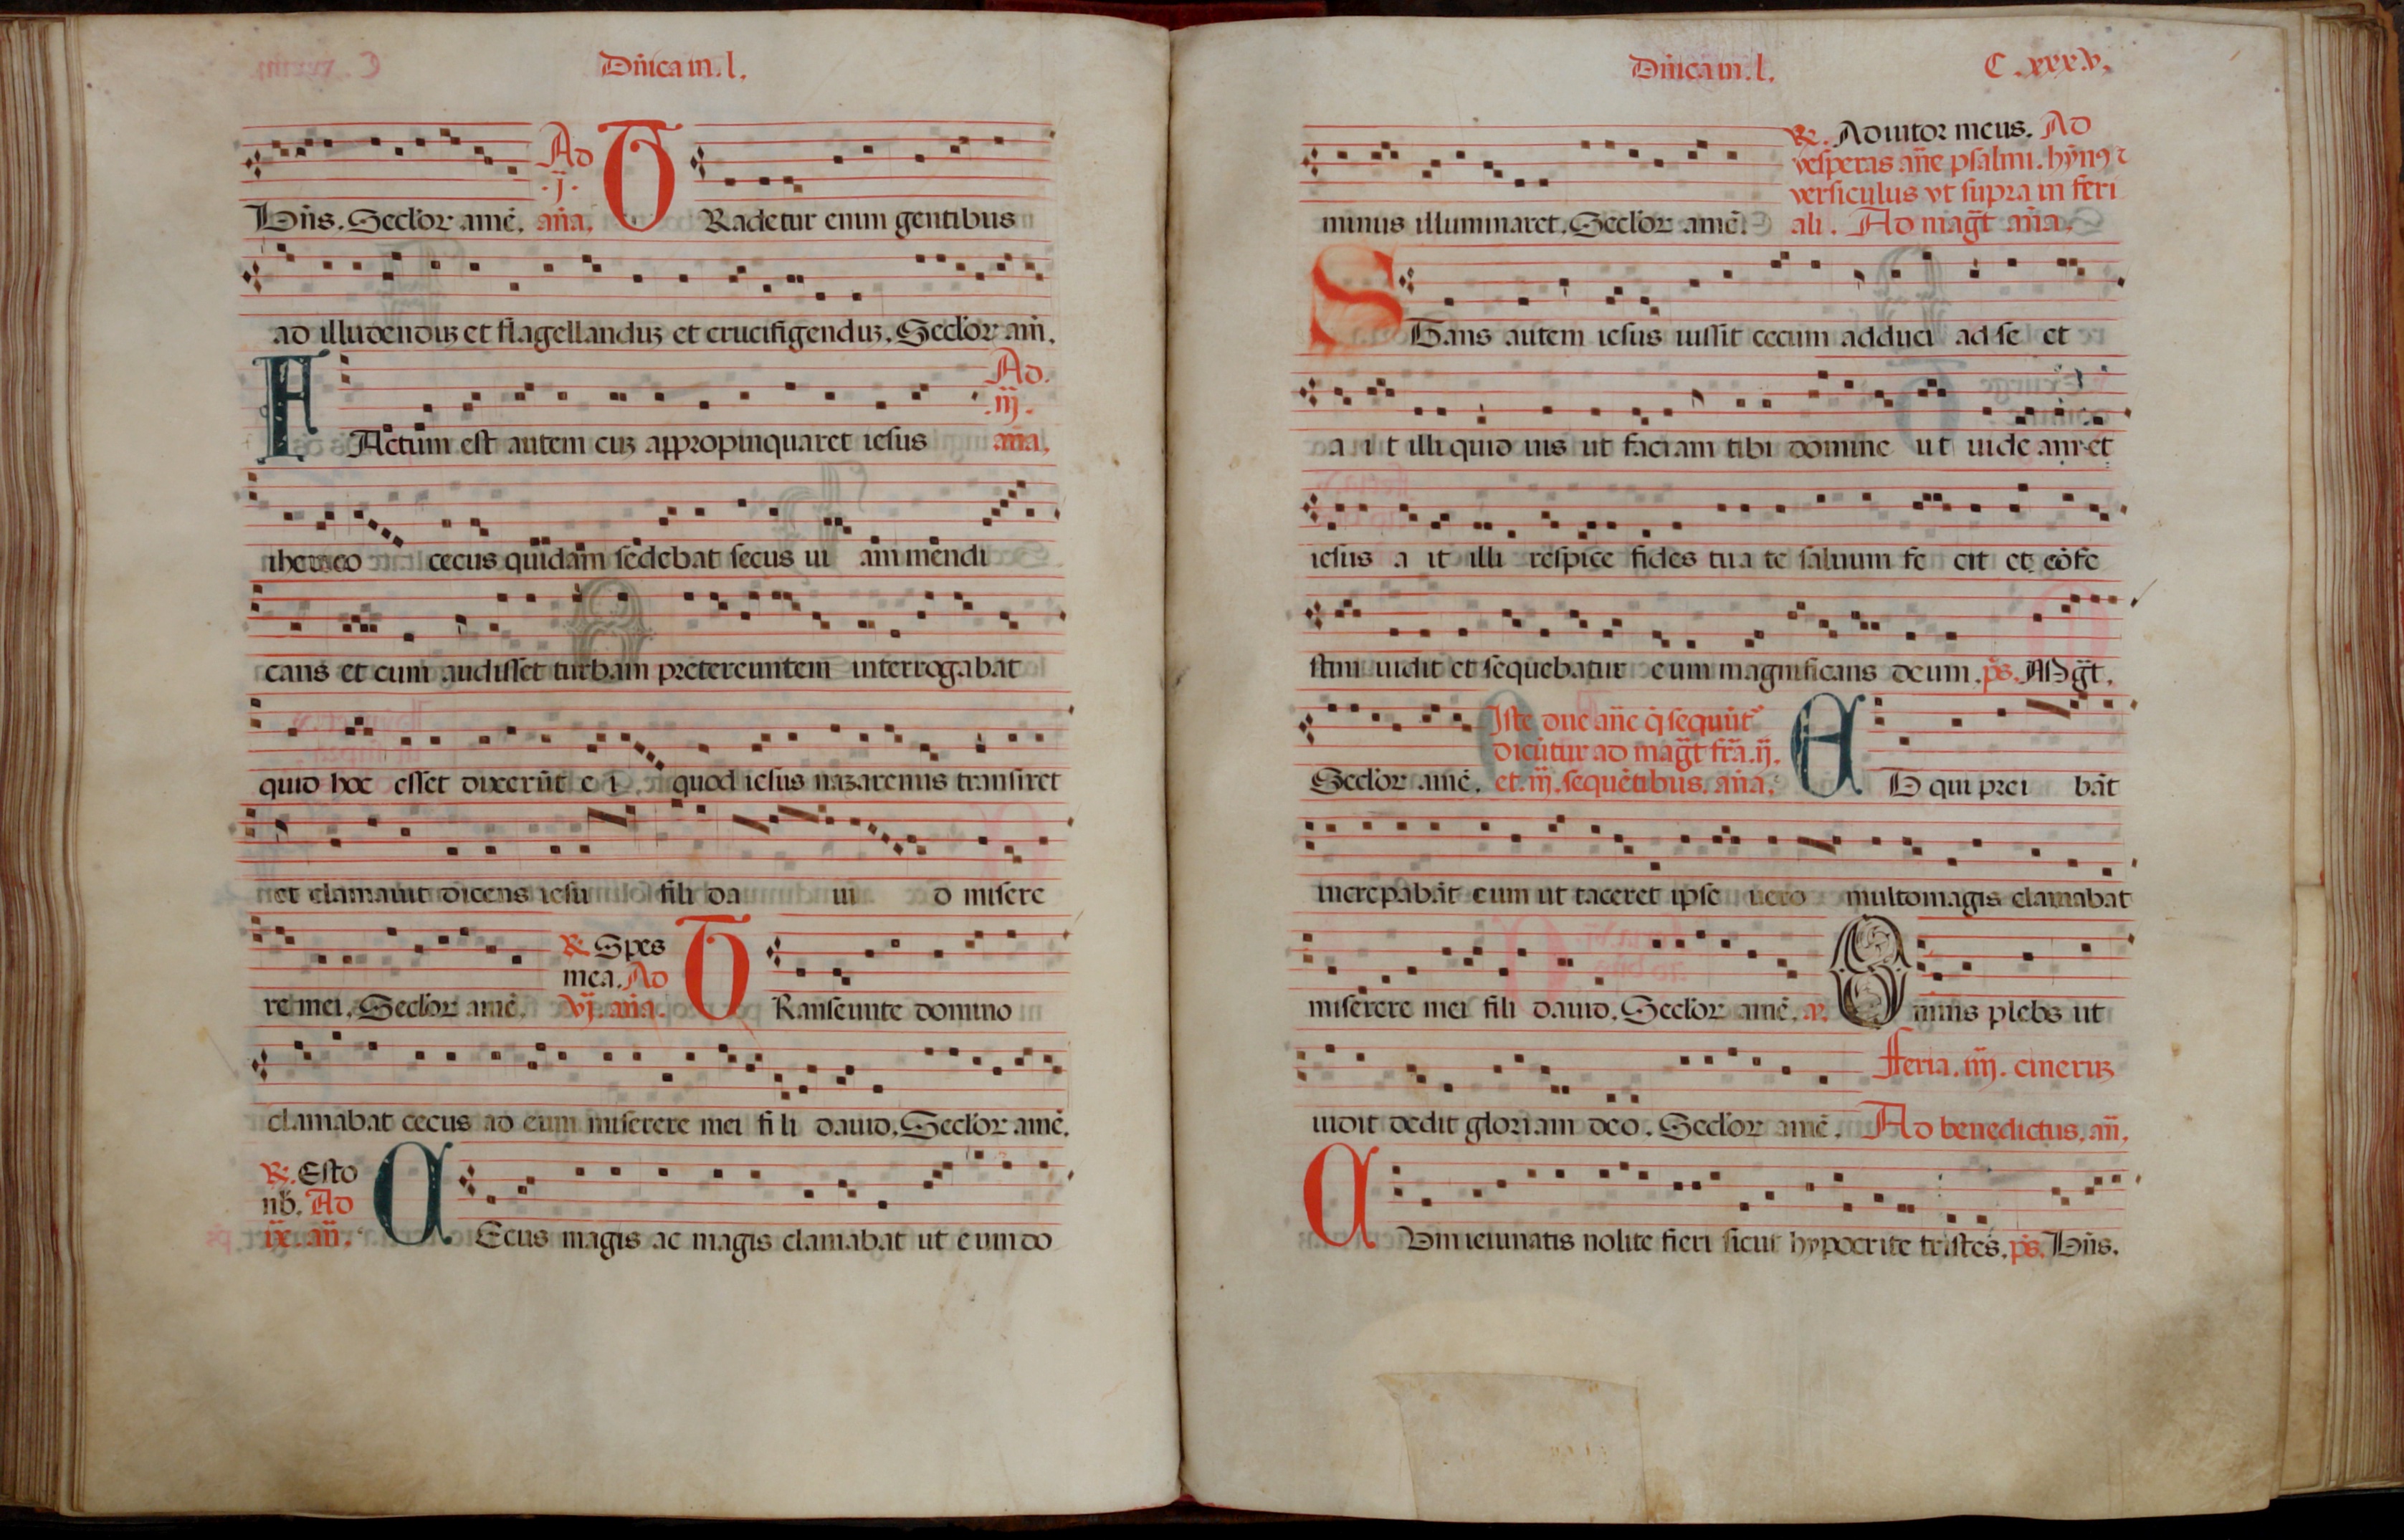 Dñica in .l.
Dñs. Seclor amē. Ad .j. aña. TRadetur enim gentibus
ad illudenduʒ et flagellanduʒ et crucifigenduʒ. Seclor am̄.
FActum est autem cuʒ appropinquaret iesus Ad .iij. aña.
iherico cecus quidam sedebat secus ui am mendi
cans et cum audisset turbam pretereuntem interrogabat
quid hoc esset dixerūt e i quod iesus nazarenus transiret
et clamauit dicens iesu fili da ui d misere
re mei. Seclor amē. ℟. Spes mea. Ad vj. aña. TRanseunte domino
clamabat cecus ad eum miserere mei fi li dauid. Seclor amē.
℟. Esto nb̄. Ad ix. an̄. CEcus magis ac magis clamabat ut eum do
Dñica in .l. C.xxxv.
minus illuminaret. Seclor amē. ℟. Adiutor meus. Ad
vesperas añe psalmi. hȳnꝯ ⁊
versiculus vt supra in feri
ali. Ad magt̄ aña.
STans autem iesus iussit cecum adduci ad se et
a i t illi quid uis ut faciam tibi domine ut uide am et
iesus a it illi respice fides tua te saluum fe cit et cōfe
stim uidit et sequebatur eum magnificans deum. ps. Mgt̄.
Seclor amē. Iste due añe q̄ sequūt
dicūtur ad magt̄ fr̄a. ij.
et .iij. sequētibus. aña. ET qui prei bāt
increpabāt eum ut taceret ipse uero multomagis clamabat
miserere mei fili dauid. Seclor amē. a. OMnis plebs ut
uidit dedit gloriam deo. Seclor amē. Feria .iiij. cineruʒ
Ad benedictus. an̄.
CUm ieiunatis nolite fieri sicut hypocrite tristes. ps. Bñs.